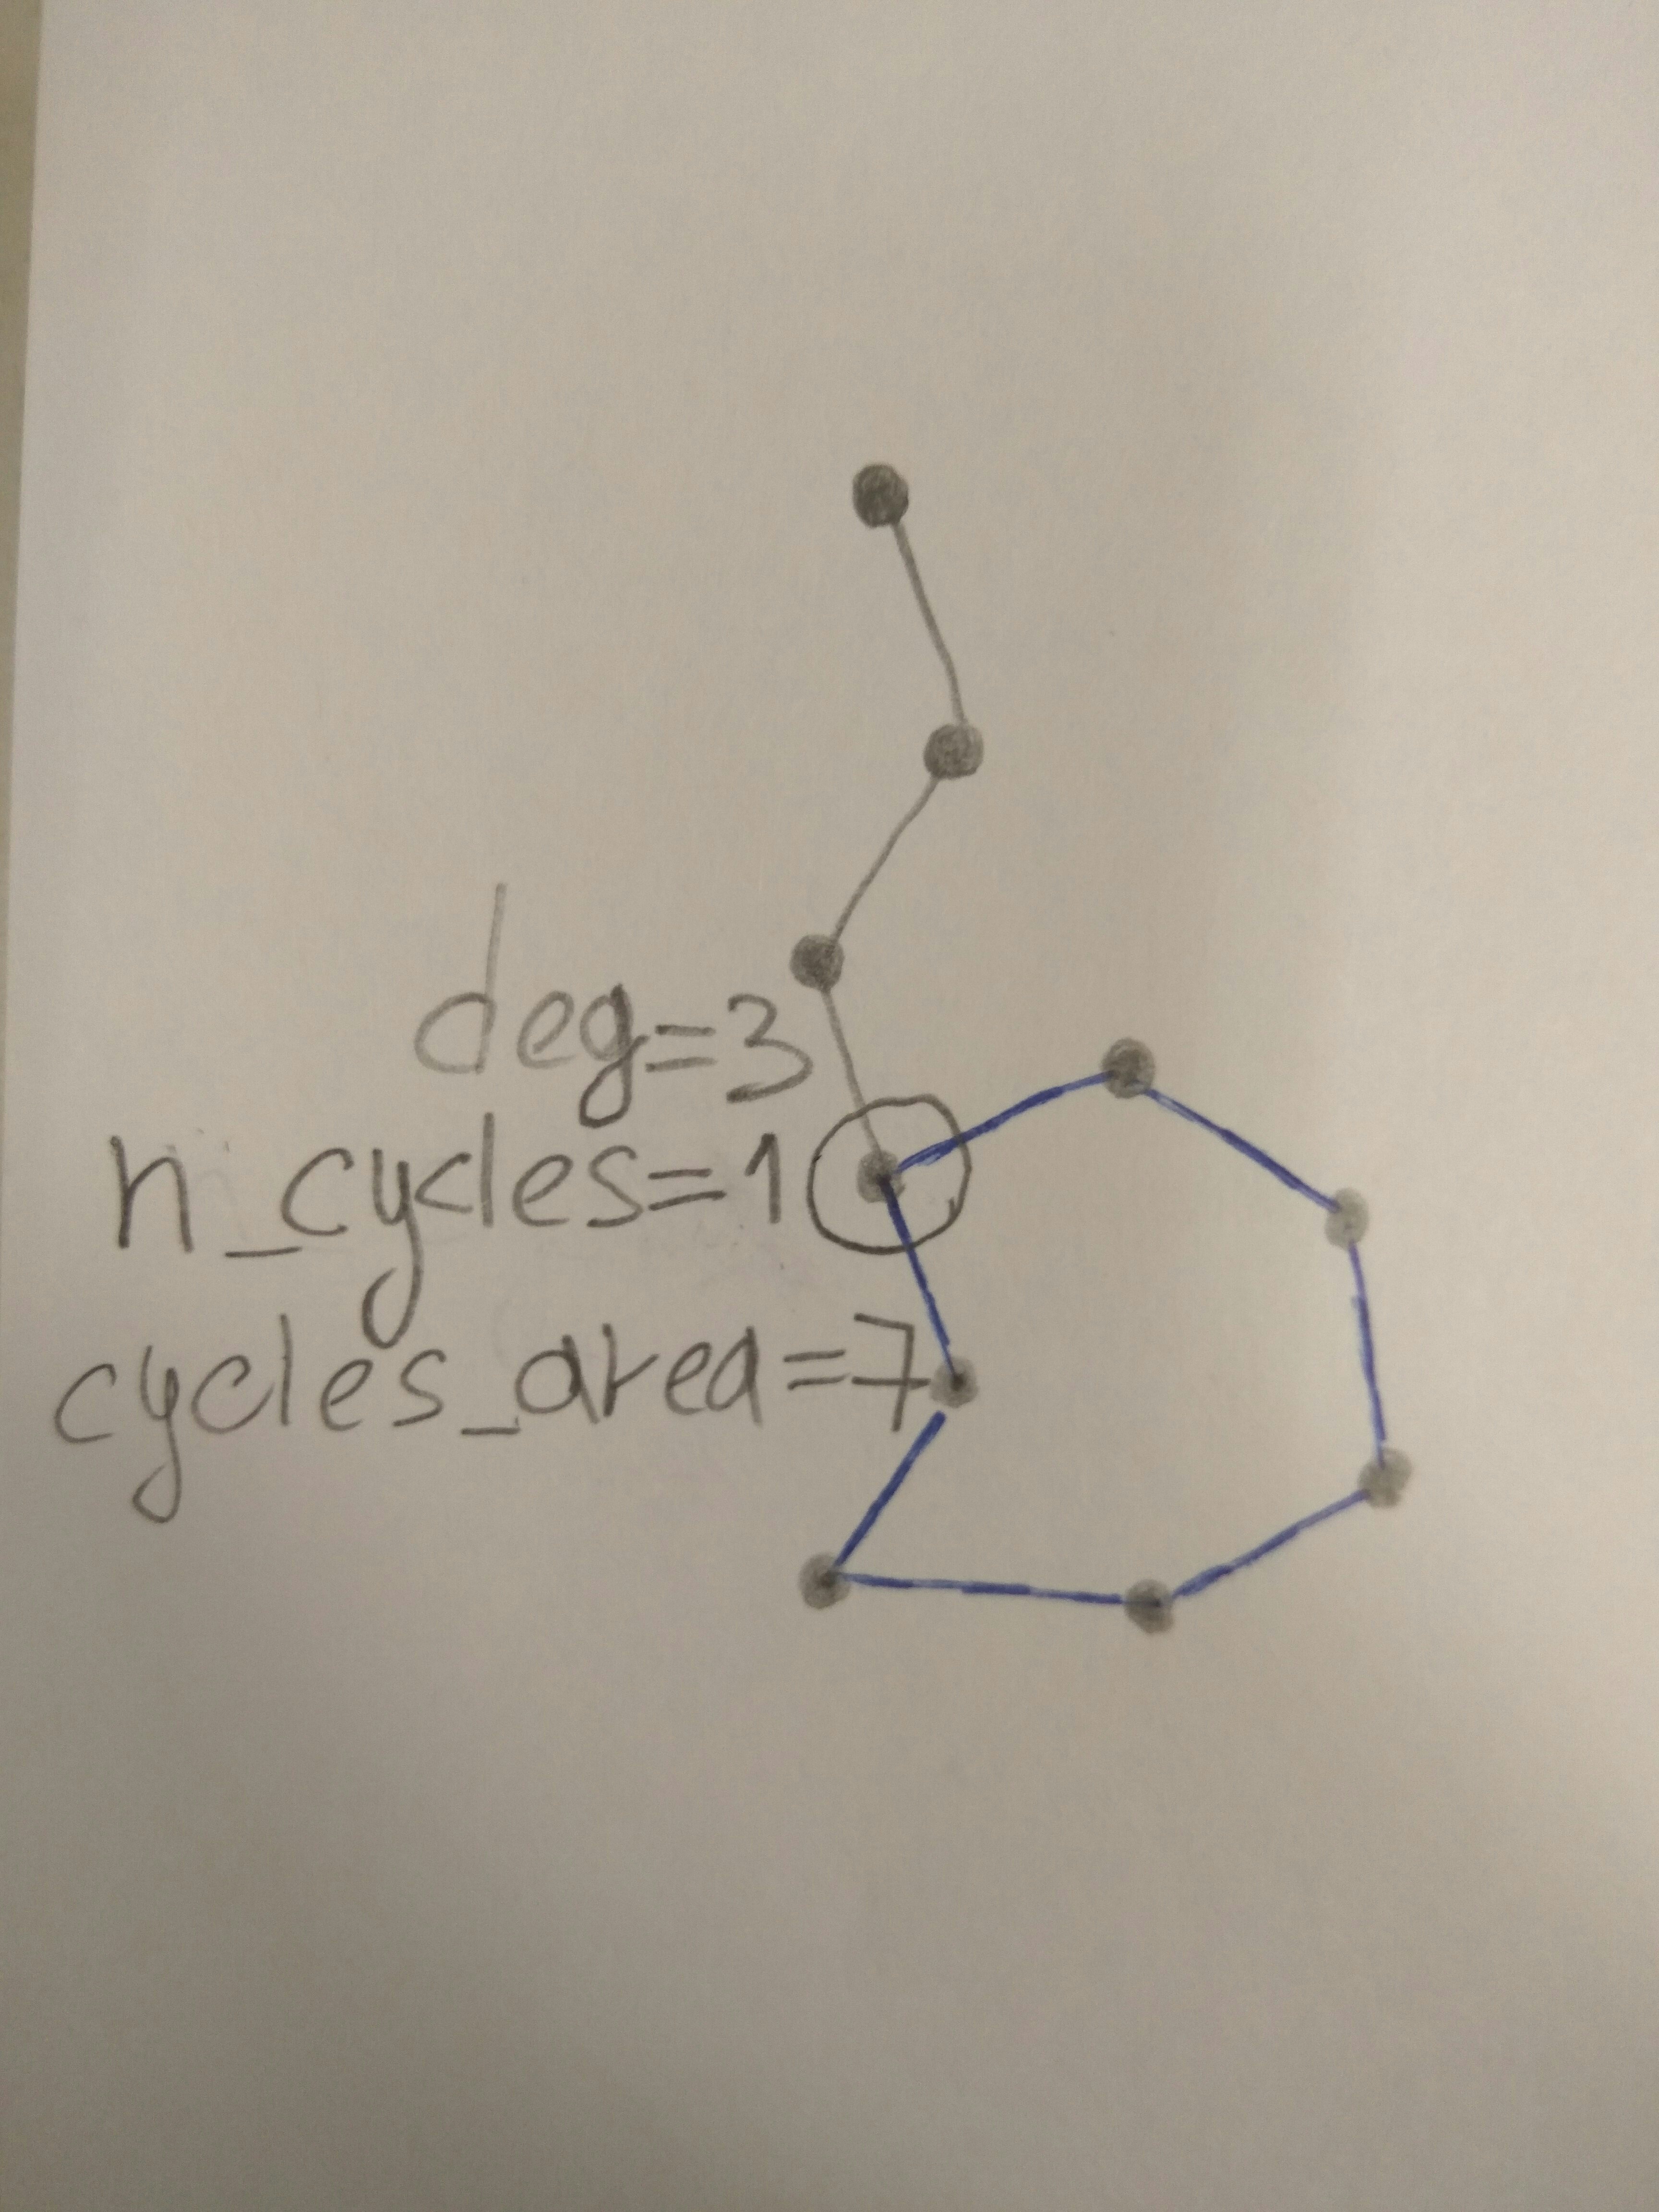 deg=3
n_cycles=1
cycles_area=7